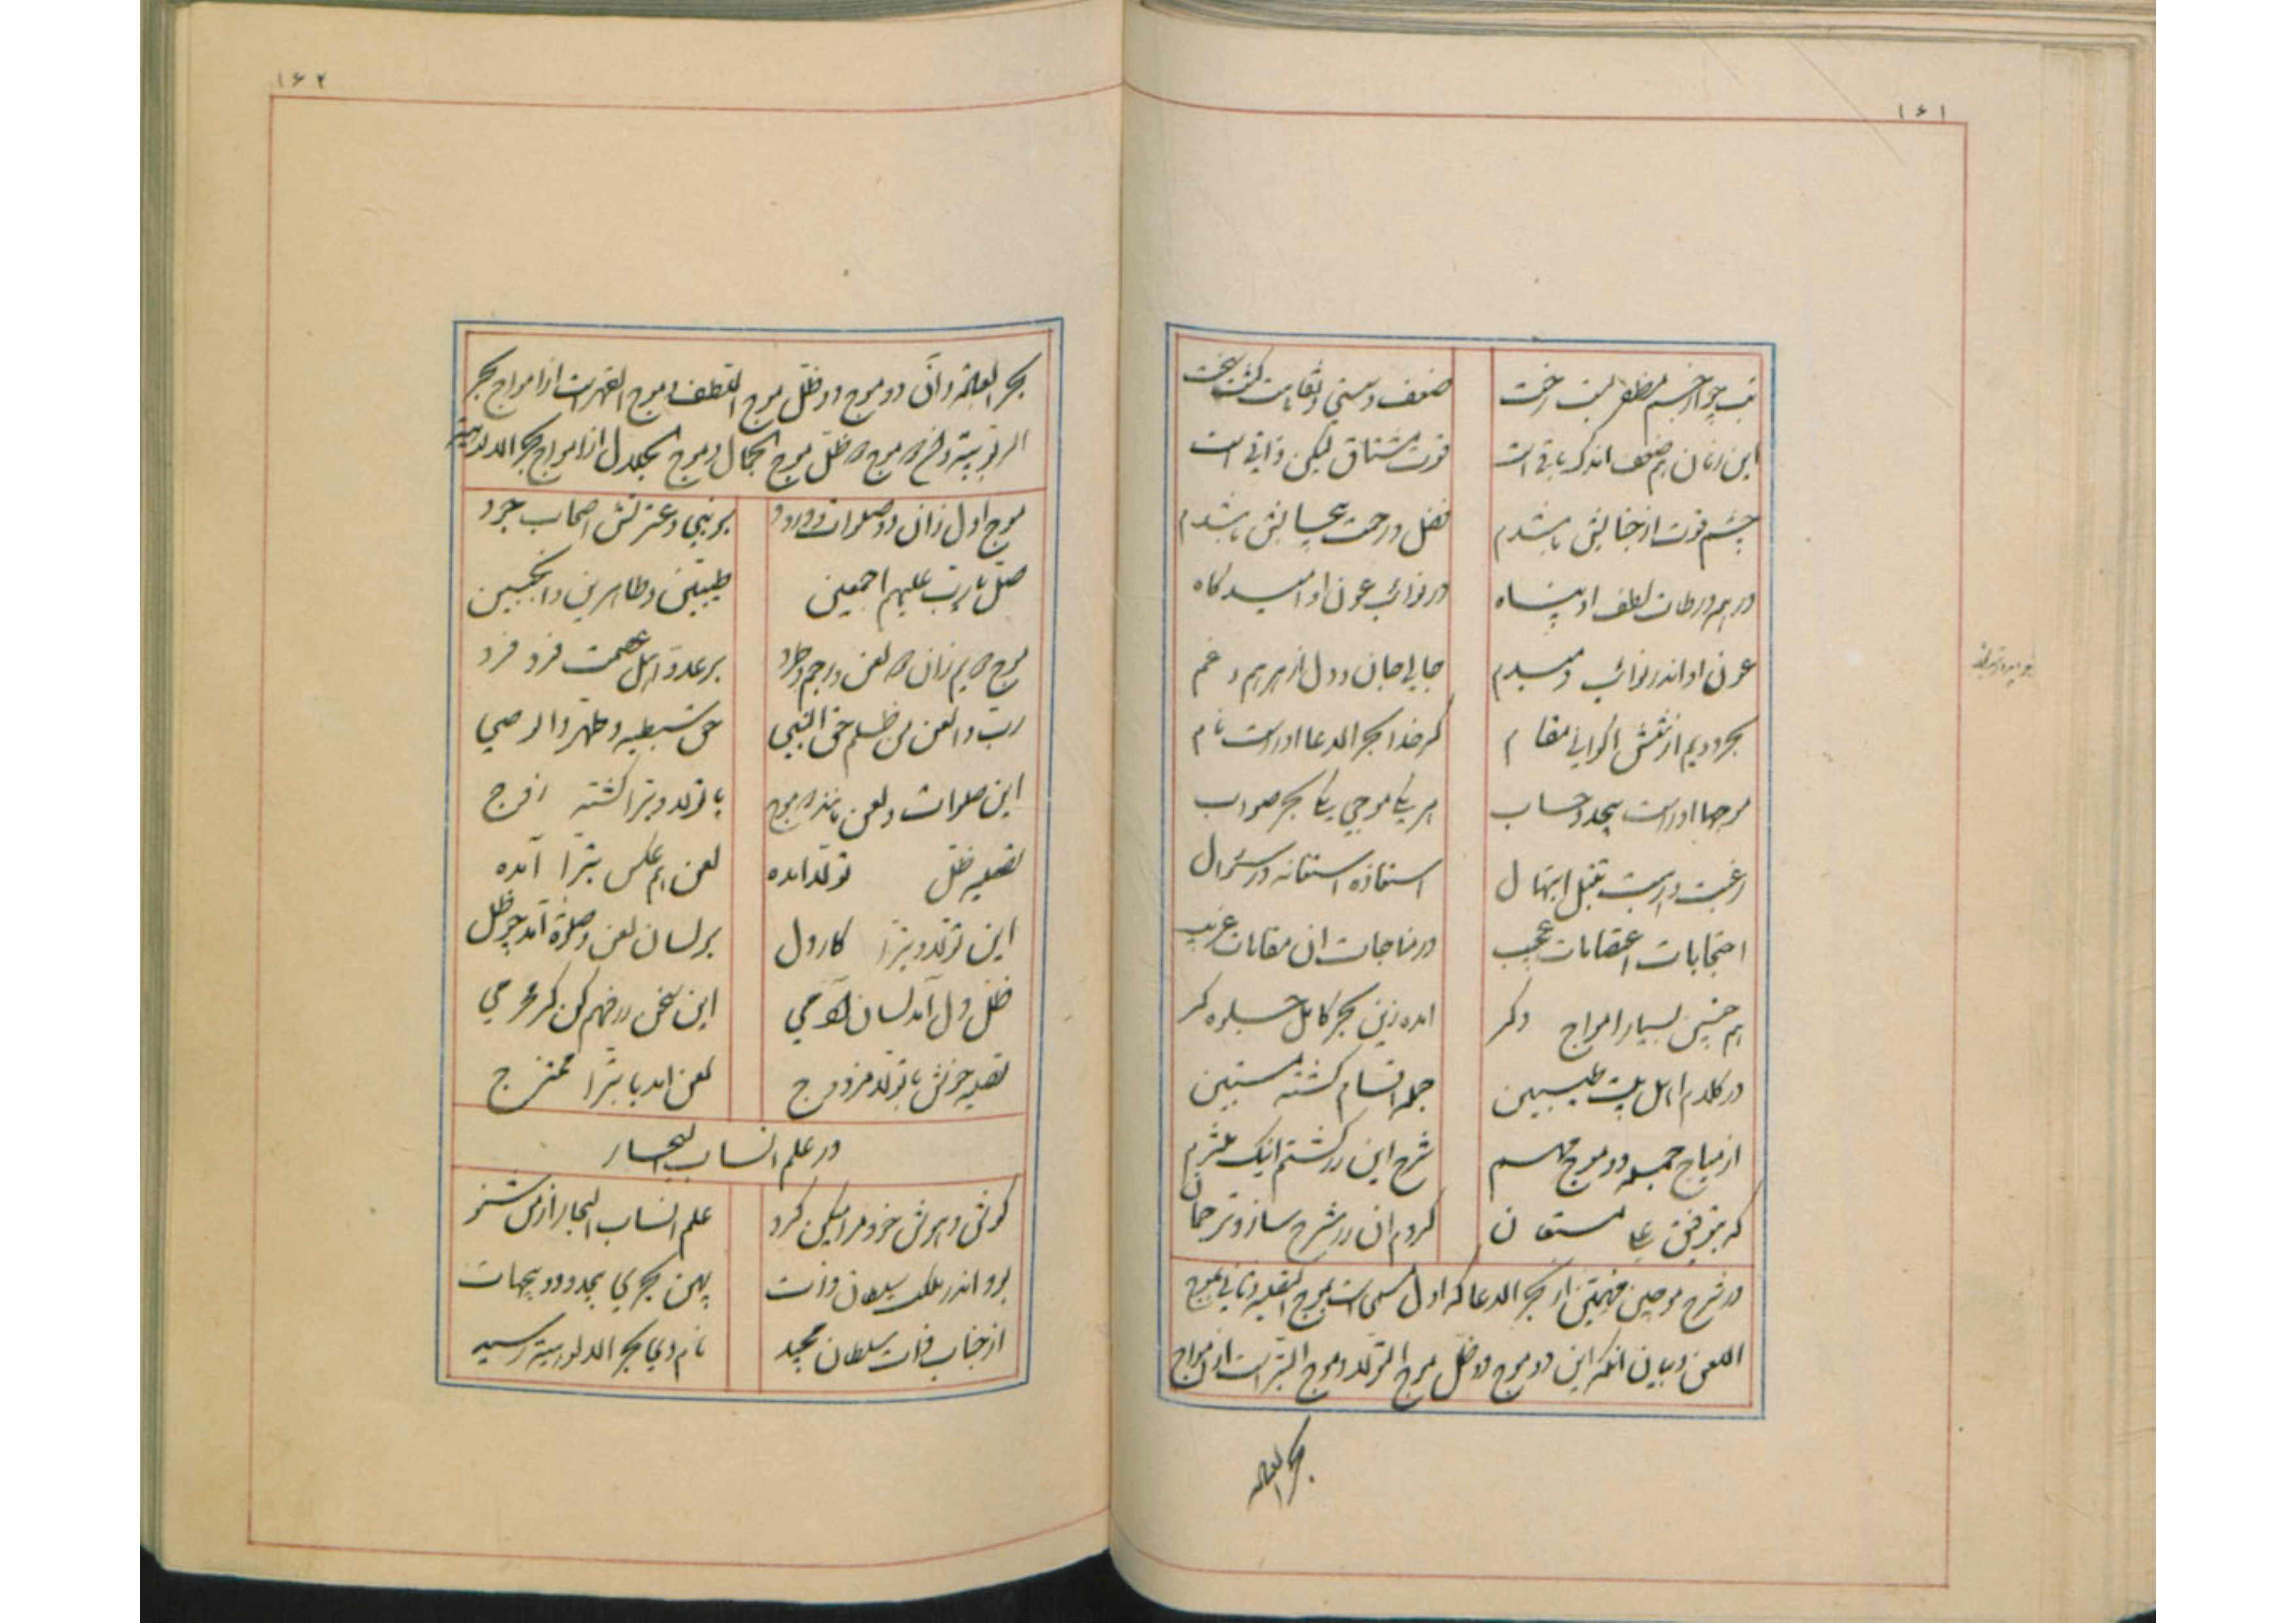 ۱۶۱
تب چو از جسم مظفر بست رخت
ضعف و سستی و نقاهت گشت سخت
این زمان هم ضعف اندک باقی است
قوت مشتاق لیکن ذاتی است
چشم قوت از جنابش باشدم
فضل و رحمت بیحسابش باشدم
در همه ورطات لطف او پناه
در نوائب عون او امیدگاه
عون او اندر نوائب دمبدم
جالی جان و دل از هر هم و غم
بحر دویم از نقش اکوانی مقام
کز خدا بحر الدعا او راست نام
موجها او راست بیحد و حساب
هر یکی موجی یکی بحر صواب
رغبت و رهبت تبتل ابتهال
استعاذه استعانه در سؤال
احتجابات اعتصامات عجیب
در مناجات آن مقامات غریب
هم چنین بسیار امواج دگر
آمده زین بحر کامل جلوه گر
در کلام اهل بیت طیبین
جمله اقسام گشته مستبین
از میاج جمله دو موج مهم
شرح این در گشتم اینک ملتزم
که بتوفیق علی مستعان
کردم آن در شرح ساز و ترجمان
در شرح موجین مهمتین از بحر الدعا که اول مسمی است بموج التصلیه و ثانی بموج
اللعن و بیان آنکه این دو موج دو ظل موج التولا و موج التبرا است از امواج
بحر العلم
۱۶۲
بحر العلم و آن دو موج دو ظل موج اللطف و موج القهر است از امواج بحر
الربوبیة و این دو موج دو ظل موج الجمال و موج الجلال از امواج بحر الالوهیة
موج اول زان دو صلوات و درود
بر نبی و عترتش اصحاب جود
صل یا رب علیهم اجمعین
طیبین و طاهرین و انجبین
موج دویم زان دو لعن و رجم و طرد
بر عدو اهل عصمت فرد فرد
رب والعن من ظلم حق النبی
حق سبطیه وطهر والوصی
این صلوات و لعن مانند دو موج
با تولا و تبرا گشته زوج
تصلیه ظل تولا آمده
لعن هم عکس تبرا آمده
این تولا و تبرا کار دل
بر لسان لعن و صلوة آمد چو ظل
ظل دل آمد لسان آدمی
این سخن در فهم کن گر محرمی
تصلیه خوش با تولا مزدوج
لعن آمد با تبرا ممتزج
در علم انساب البحار
گوش و هوش خود مرا نیکی گرو
علم انساب البحار از من شنو
بود اندر ملک سلطان ذات
پهن بحری بیحدود و بیجهات
از جناب ذات سلطان مجید
نام وی بحر الالوهیة رسید